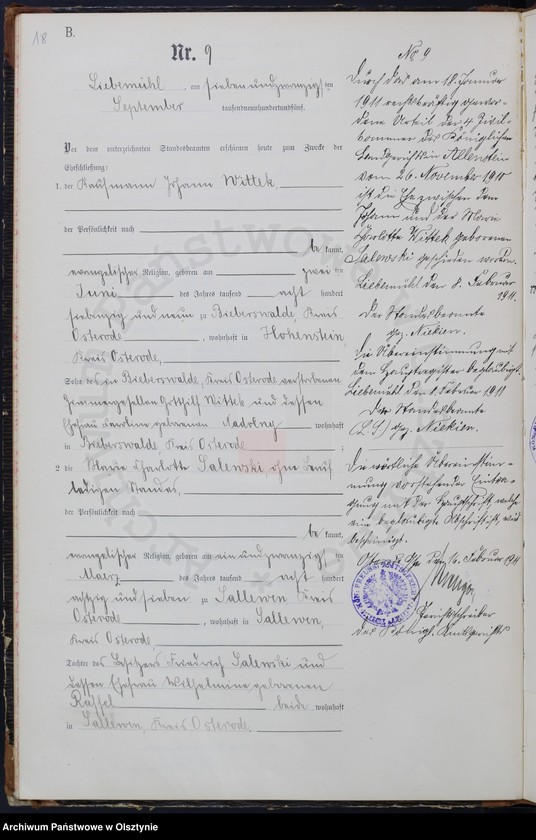 18
B.
Nr. 9
Liebemühl, am siebenundzwanzigsten
September tausendneunhundertundfünf.
Vor dem unterzeichneten Standesbeamten erschienen heute zum Zwecke der
Eheschließung:
1. der Kaufmann Johann Wittek,
der Persönlichkeit nach
be kannt,
evangelischer Religion, geboren am zwei ten
Juni des Jahres tausend acht hundert
siebenzig und neun zu Bieberswalde, Kreis
Osterode, wohnhaft in Hohenstein,
Kreis Osterode,
Sohn des in Bieberswalde, Kreis Osterode verstorbenen
Zimmergesellen Gotthilf Wittek und dessen
Ehefrau Karoline geborenen Nadolny wohnhaft
in Bieberswalde, Kreis Osterode ;
2. die Marie Charlotte Salewski, ohne Beruf
ledigen Standes,
der Persönlichkeit nach
be kannt,
evangelischer Religion, geboren am einundzwanzig sten
März des Jahres tausend acht hundert
achtzig und sieben zu Sallewen, Kreis
Osterode, wohnhaft in Sallewen,
Kreis Osterode
Tochter des Besitzers Friedrich Salewski und
dessen Ehefrau Wilhelmine geborenen
beide wohnhaft
in Sallewen, Kreis Osterode.
No 9
Durch das am 18. Januar
1911 rechtskräftig gewor-
dene Urteil der 4. Zivil-
kammer des Königlichen
Landgerichts in Allenstein
vom 26. November 1910
ist die Ehe zwischen dem
Johann und der Marie
Charlotte Wittek geborenen
Salewski geschieden worden.
Liebemühl den 8. Februar
1911.
Der Standesbeamte
gez. Niekien.
Die Übereinstimmung mit
dem Hauptregister beglaubigt.
Liebemühl den 8. Februar 1911
Der Standesbeamte
(L. S.) gez. Niekien.
Die wörtliche Übereinstim-
mung vorstehender Eintra-
gung mit der Hauptschrift, welche
eine beglaubigte Abschrift ist, wird
bescheinigt.
den 16. Februar 1911
Gerichtsschreiber
des Königl. Amtsgerichts
Archiwum Państwowe w Olsztynie